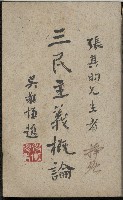 張其昀先生著
三民主義概論
吳敬恆題